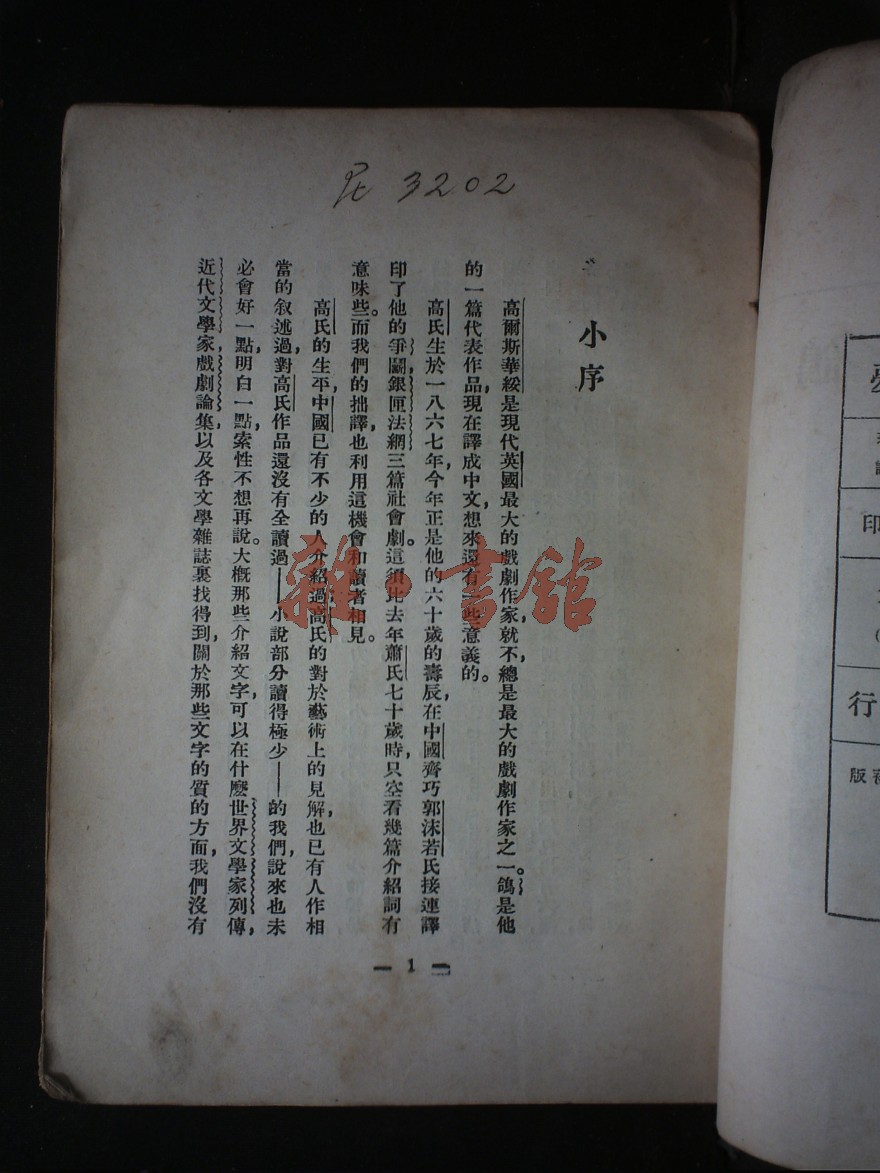 Pt 3202
小序
高爾斯華綏是現代英國最大的戲劇作家,就不,總是最大的戲劇作家之一。鴿是他
的一篇代表作品,現在譯成中文,想來還有些意義的。
高氏生於一八六七年,今年正是他的六十歲的壽辰,在中國齊巧郭沫若氏接連譯
印了他的爭鬭,銀匣,法網三篇社會劇。這須比去年蕭氏七十歲時,只空看幾篇介紹詞有
意味些。而我們的拙譯,也利用這機會和讀者相見。
高氏的生平,中國已有不少的人介紹過,高氏的對於藝術上的見解,也已有人作相
當的叙述過,對高氏作品還沒有全讀過——小說部分讀得極少——的我們,說來也未
必會好一點,明白一點,索性不想再說。大概那些介紹文字,可以在什麼世界文學家列傳,
近代文學家,戲劇論集,以及各文學雜誌裏找得到,關於那些文字的質的方面,我們沒有
— 1 —
雜·書館
印
行
版